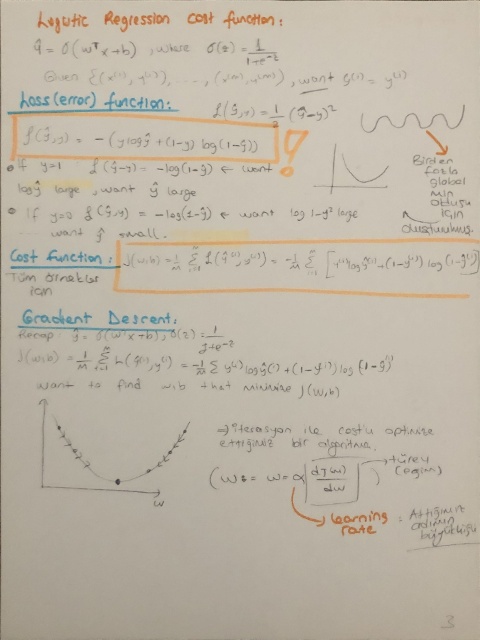 Logistic Regression cost function:
ŷ = σ(wᵀx+b), where σ(z) = 1/(1+e⁻ᶻ)
Given {(x⁽¹⁾, y⁽¹⁾), ..., (x⁽ᵐ⁾, y⁽ᵐ⁾)}, want ŷ⁽ⁱ⁾ = y⁽ⁱ⁾
Loss (error) function: L(ŷ,y) = 1/2 (ŷ-y)²
L(ŷ,y) = -(y log ŷ + (1-y) log(1-ŷ)) !
• If y=1 L(ŷ-y) = -log(1-ŷ) ← want
log ŷ large, want ŷ large
• If y=0 L(ŷ,y) = -log(1-ŷ) ← want log 1-ŷ large
want ŷ small.
Birden
fazla
global
min
olduğu
için
Cost function: J(w,b) = 1/m Σ L(ŷ⁽ⁱ⁾, y⁽ⁱ⁾) = -1/m Σ [y⁽ⁱ⁾ log ŷ⁽ⁱ⁾ + (1-y⁽ⁱ⁾) log(1-ŷ⁽ⁱ⁾)]
Tüm örnekler
için
Gradient Descent:
Recap: ŷ = σ(wᵀx+b), σ(z) = 1/(1+e⁻ᶻ)
J(w,b) = 1/m Σ L(ŷ⁽ⁱ⁾, y⁽ⁱ⁾) = -1/m Σ y⁽ⁱ⁾ log ŷ⁽ⁱ⁾ + (1-y⁽ⁱ⁾) log(1-ŷ⁽ⁱ⁾)
want to find w,b that minimize J(w,b)
⇒ iterasyon ile cost'u optimize
ettiğimiz bir algoritma.
(w := w - α dJ(w)/dw) → türev
(eğim)
w
→ learning
rate = Attığımız
adımın
büyüklüğü
3